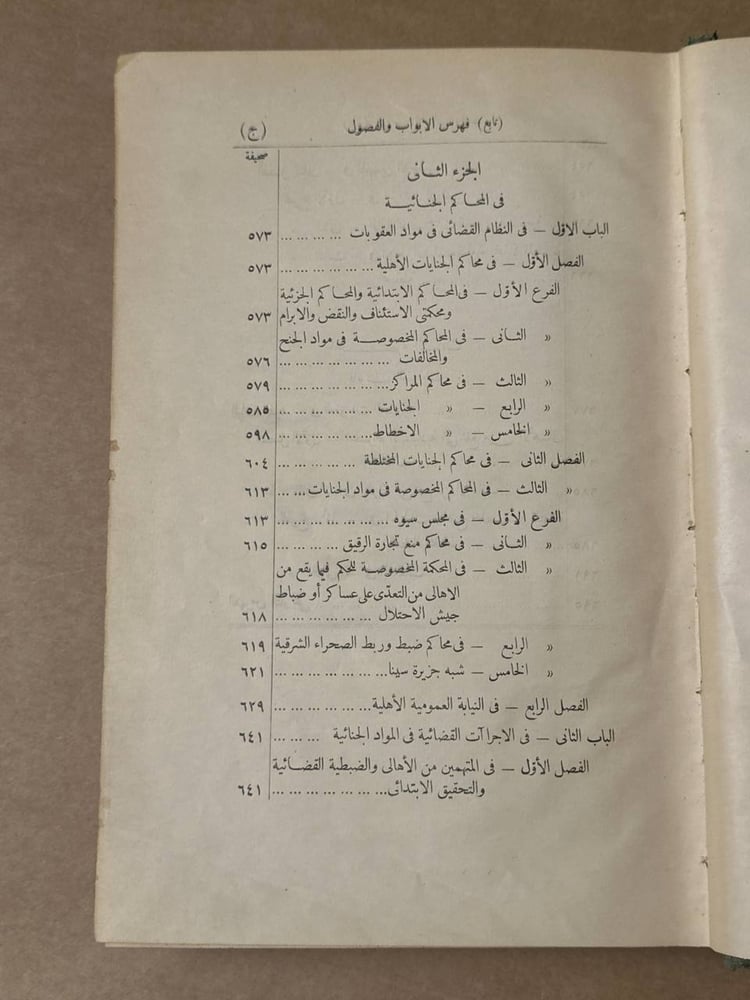 (تابع) فهرس الابواب والفصول (ج)
صحيفة
الجزء الثانى
فى المحاكم الجنائية
الباب الاوّل — فى النظام القضائى فى مواد العقوبات ... ... ... ... ٥٧٣
الفصل الأوّل — فى محاكم الجنايات الأهلية ... ... ... ... ... ٥٧٣
الفرع الأوّل — فى المحاكم الابتدائية والمحاكم الجزئية
ومحكمتى الاستئناف والنقض والابرام ٥٧٣
« الثانى — فى المحاكم المخصوصة فى مواد الجنح
والمخالفات ... ... ... ... ... ... ... ٥٧٦
« الثالث — فى محاكم المراكز ... ... ... ... ... ٥٧٩
« الرابع — « الجنايات ... ... ... ... ... ... ٥٨٥
« الخامس — « الاخطاط ... ... ... ... ... ... ٥٩٨
الفصل الثانى — فى محاكم الجنايات المختلطة ... ... ... ... ... ٦٠٤
« الثالث — فى المحاكم المخصوصة فى مواد الجنايات ... ... ٦١٣
الفرع الأوّل — فى مجلس سيوه ... ... ... ... ... ... ... ٦١٣
« الثانى — فى محاكم منع تجارة الرقيق ... ... ... ... ٦١٥
« الثالث — فى المحكمة المخصوصة للحكم فيما يقع من
الاهالى من التعدّى على عساكر أو ضباط
جيش الاحتلال ... ... ... ... ... ... ٦١٨
« الرابع — فى محاكم ضبط وربط الصحراء الشرقية ٦١٩
« الخامس — شبه جزيرة سينا ... ... ... ... ... ... ٦٢١
الفصل الرابع — فى النيابة العمومية الأهلية ... ... ... ... ... ٦٢٩
الباب الثانى — فى الاجراآت القضائية فى المواد الجنائية ... ... ... ٦٤١
الفصل الأوّل — فى المتهمين من الأهالى والضبطية القضائية
والتحقيق الابتدائى ... ... ... ... ... ... ... ٦٤١